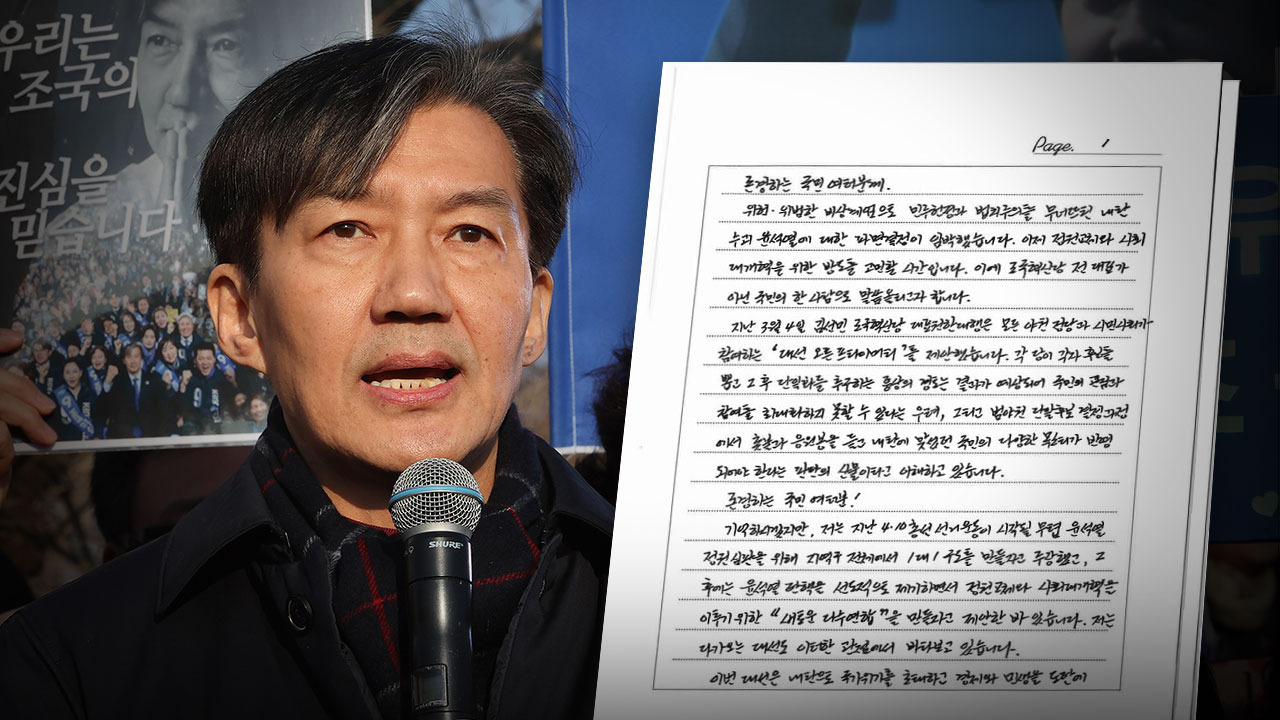 우리는
조국의
진심을
믿습니다
SHURE
Page. 1
존경하는 국민 여러분께.
위헌·위법한 비상계엄으로 민주헌정과 법치주의를 무너뜨린 내란
수괴 윤석열에 대한 파면결정이 임박했습니다. 이제 정권교체와 사회
대개혁을 위한 방도를 고민할 시간입니다. 이에 조국혁신당 전 대표가
아닌 국민의 한 사람으로 말씀올리고자 합니다.
지난 3월 4일 김선민 조국혁신당 대표권한대행은 모든 야권 정당과 시민사회가
참여하는 '대선 오픈 프라이머리'를 제안했습니다. 각 당이 각자 후보를
뽑고 그 후 단일화를 추구하는 통상의 경로는 결과가 예상되어 국민의 관심과
참여를 최대화하지 못할 수 있다는 우려, 그리고 범야권 단일후보 결정과정
에서 촛불과 응원봉을 들고 내란에 맞섰던 국민의 다양한 목소리가 반영
되어야 한다는 판단의 산물이라고 이해하고 있습니다.
존경하는 국민 여러분!
기억하시겠지만, 저는 지난 4·10 총선 선거운동이 시작될 무렵 윤석열
정권심판을 위해 지역구 전체에서 1대1 구도를 만들자고 주장했고, 그
후에는 윤석열 탄핵을 선도적으로 제기하면서 정권교체와 사회대개혁을
이루기 위한 "새로운 다수연합"을 만들자고 제안한 바 있습니다. 저는
다가오는 대선도 이러한 관점에서 바라보고 있습니다.
이번 대선은 내란으로 국가위기를 초래하고 경제와 민생을 도탄에